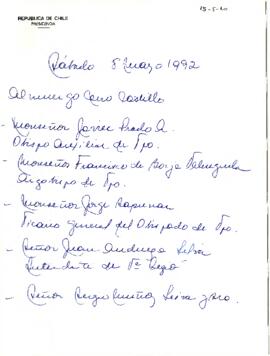 REPUBLICA DE CHILE
PRESIDENCIA
Sábado 8 Mayo 1992
Almuerzo Cerro Castillo
- Monseñor Javier Prado A.
Obispo Auxiliar de Vpo.
- Monseñor Francisco de Borja Valenzuela
Arzobispo de Vpo.
- Monseñor Jorge
Vicario General del Obispado de Vpo.
- Señor Juan Andueza Silva
Intendente de Vª Región
- Señor Sergio Muñoz Leiva